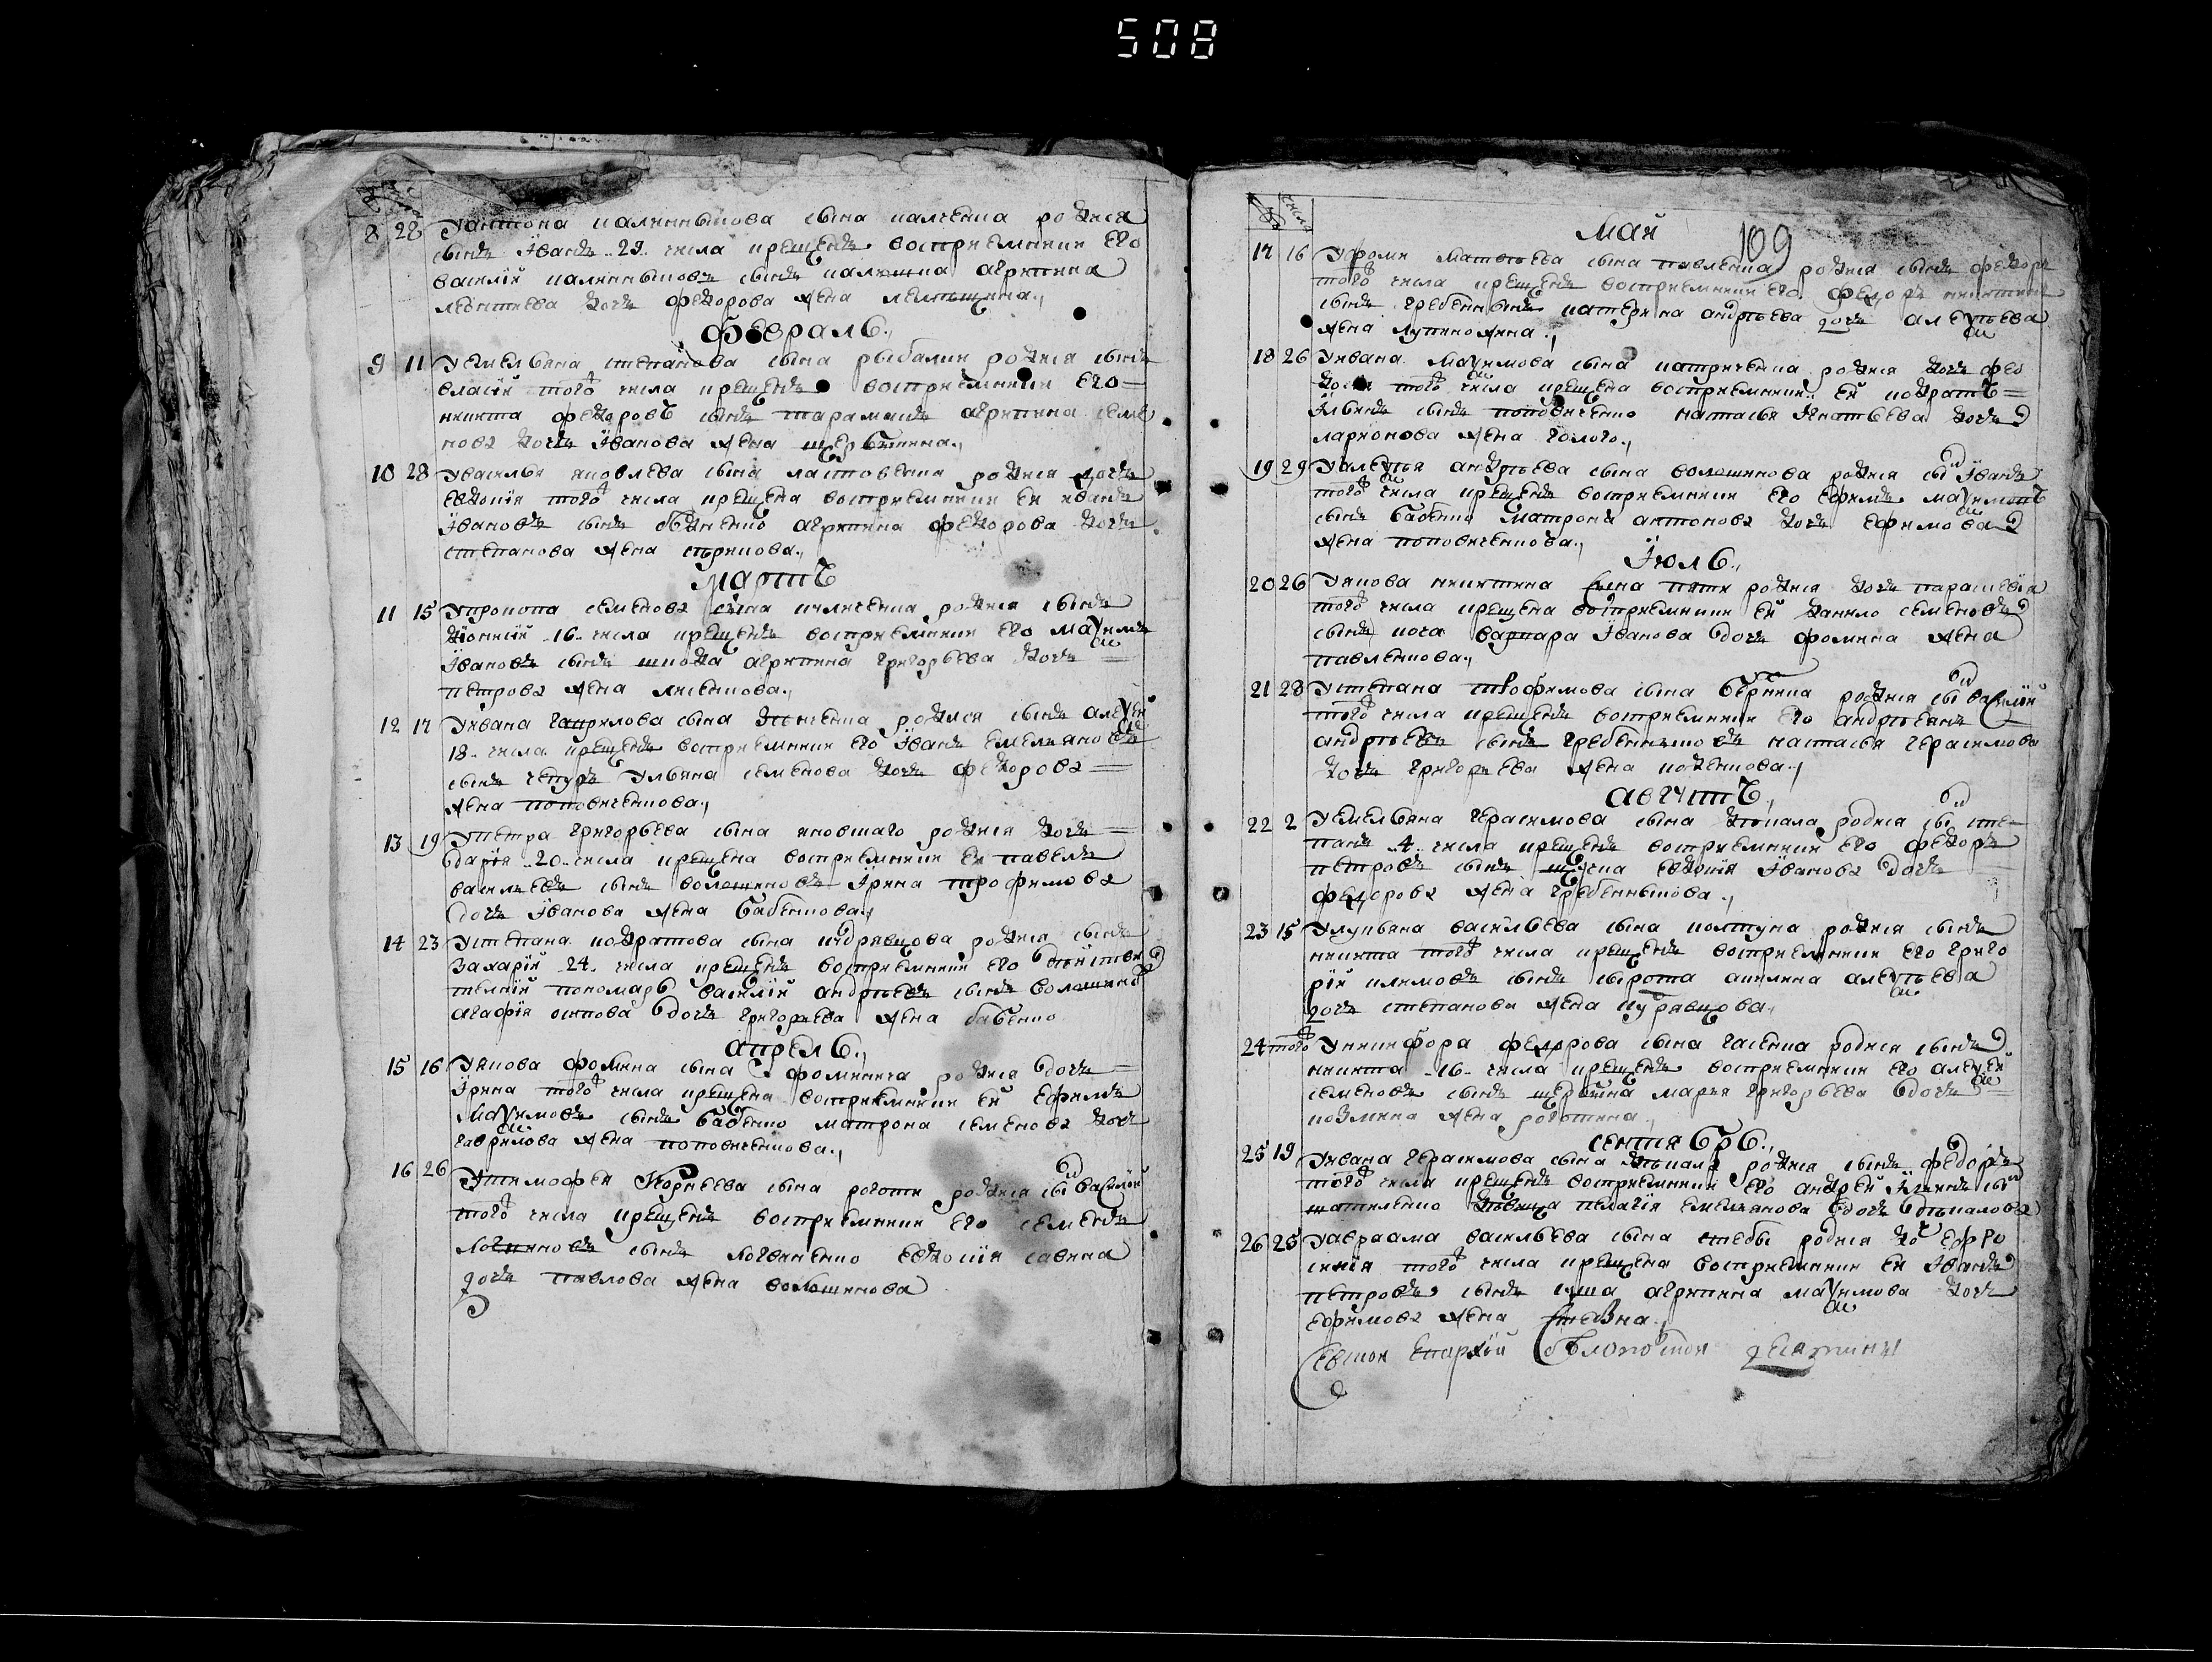 508
8 28 Уантона калинникова сына калченка родися
сынъ Іванъ 29 числа крещенъ восприемники его
василій калинниковъ сынъ агрипина
леонтиева дочъ федорова жена
февраль
9 11 Уемельяна степанова сына рыбалки родися сынъ
власій того числа крещенъ восприемники его
никита федоровъ сынъ тарамакъ агрипина семе
нова дочъ Іванова жена щербинина
10 28 Увасилья яковлева сына ластовенка родися дочъ
евдокія того числа крещена восприемники ея иванъ
Івановъ сынъ агрипина федорова дочъ
степанова жена
мартъ
11 15 Упрокопа семенова сына родися сынъ
діонисій 16 числа крещенъ восприемники его маѯимъ
Івановъ сынъ шкода агрипина григорьева дочъ
петрова жена лисенкова
12 17 Уивана гаврилова сына родися сынъ алеѯѣй
18 числа крещенъ восприемники его Іванъ емельяновъ
сынъ чепуръ Ульяна семенова дочъ федорова
жена поповиченкова
13 19 Упетра григорьева сына яковшаго родися дочъ
дарія 20 числа крещена восприемники ея павелъ
василевъ сынъ волошиновъ Ірина трофимова
дочъ Іванова жена бабенкова
14 23 Устепана кодратова сына кудрявцова родися сынъ
Захарій 24 числа крещенъ восприемники его
пономарь василій андрѣевъ сынъ
агафія осипова дочъ григорьева жена бабенко
апрель
15 16 Уякова фомина сына фоминича родися дочъ
Ірина того числа крещена восприемники ей ефимъ
Маѯимовъ сынъ бабенко матрона семенова дочъ
гаврилова жена поповиченкова
16 26 Утимофея Корнеева сына роготи родися сынъ василій
того числа крещенъ восприемники его семенъ
логвиновъ сынъ логвиненко евдокія савина
дочъ павлова жена волошинова
109
Май
17 16 Уфоми матвѣева сына павленка родися сынъ федоръ
того числа крещенъ восприемники его федоръ никитинъ
сынъ гребенникъ катерина андрѣева дочъ алеѯѣева
жена
18 26 Уивана маѯимова сына родися дочъ фео
досия того числа крещена восприемники ей кодратъ
Ільинъ сынъ поповиченко настасья Ігнатьева дочъ
ларионова жена голого
19 29 Уалеѯѣя андрѣева сына волошинова родися сынъ Іванъ
того числа крещенъ восприемники его ефимъ маѯимовъ
сынъ бабенко матрона антонова дочъ ефимова
жена поповиченкова
Іюль
20 26 Уякова никитина сына родися дочъ параскевія
того числа крещена восприемники ей данило семеновъ
сынъ варвара Іванова дочъ фомина жена
павленкова
21 28 Устепана трофимова сына родися сынъ василій
того числа крещенъ восприемники его андрѣянъ
андрѣевъ сынъ гребенниковъ настасья герасимова
дочъ григорьева жена
августъ
22 2 Уемельяна герасимова сына родися сынъ сте
панъ 4 числа крещенъ восприемники его федоръ
петровъ сынъ евдокія Іванова дочъ
федорова жена гребенникова
23 15 Улукьяна васильева сына колтуна родися сынъ
никита того числа крещенъ восприемники его григо
рій климовъ сынъ сирота акилина алеѯѣева
дочъ степанова жена кудрявцова
24 того Уникифора федорова сына гасенка родися сынъ
никита 16 числа крещенъ восприемники его алеѯѣй
семеновъ сынъ щербина марья григорьева дочъ
козмина жена роготина
сентябрь
25 19 Уивана герасимова сына родися сынъ федоръ
того числа крещенъ восприемники его андрей сынъ
пелагія емельянова дочъ
26 25 Уавраама васильева сына родися дочъ ефро
синія того числа крещена восприемники ея Іванъ
петровъ сынъ агрипина маѯимова дочъ
ефимова жена
евской епархіи десятини